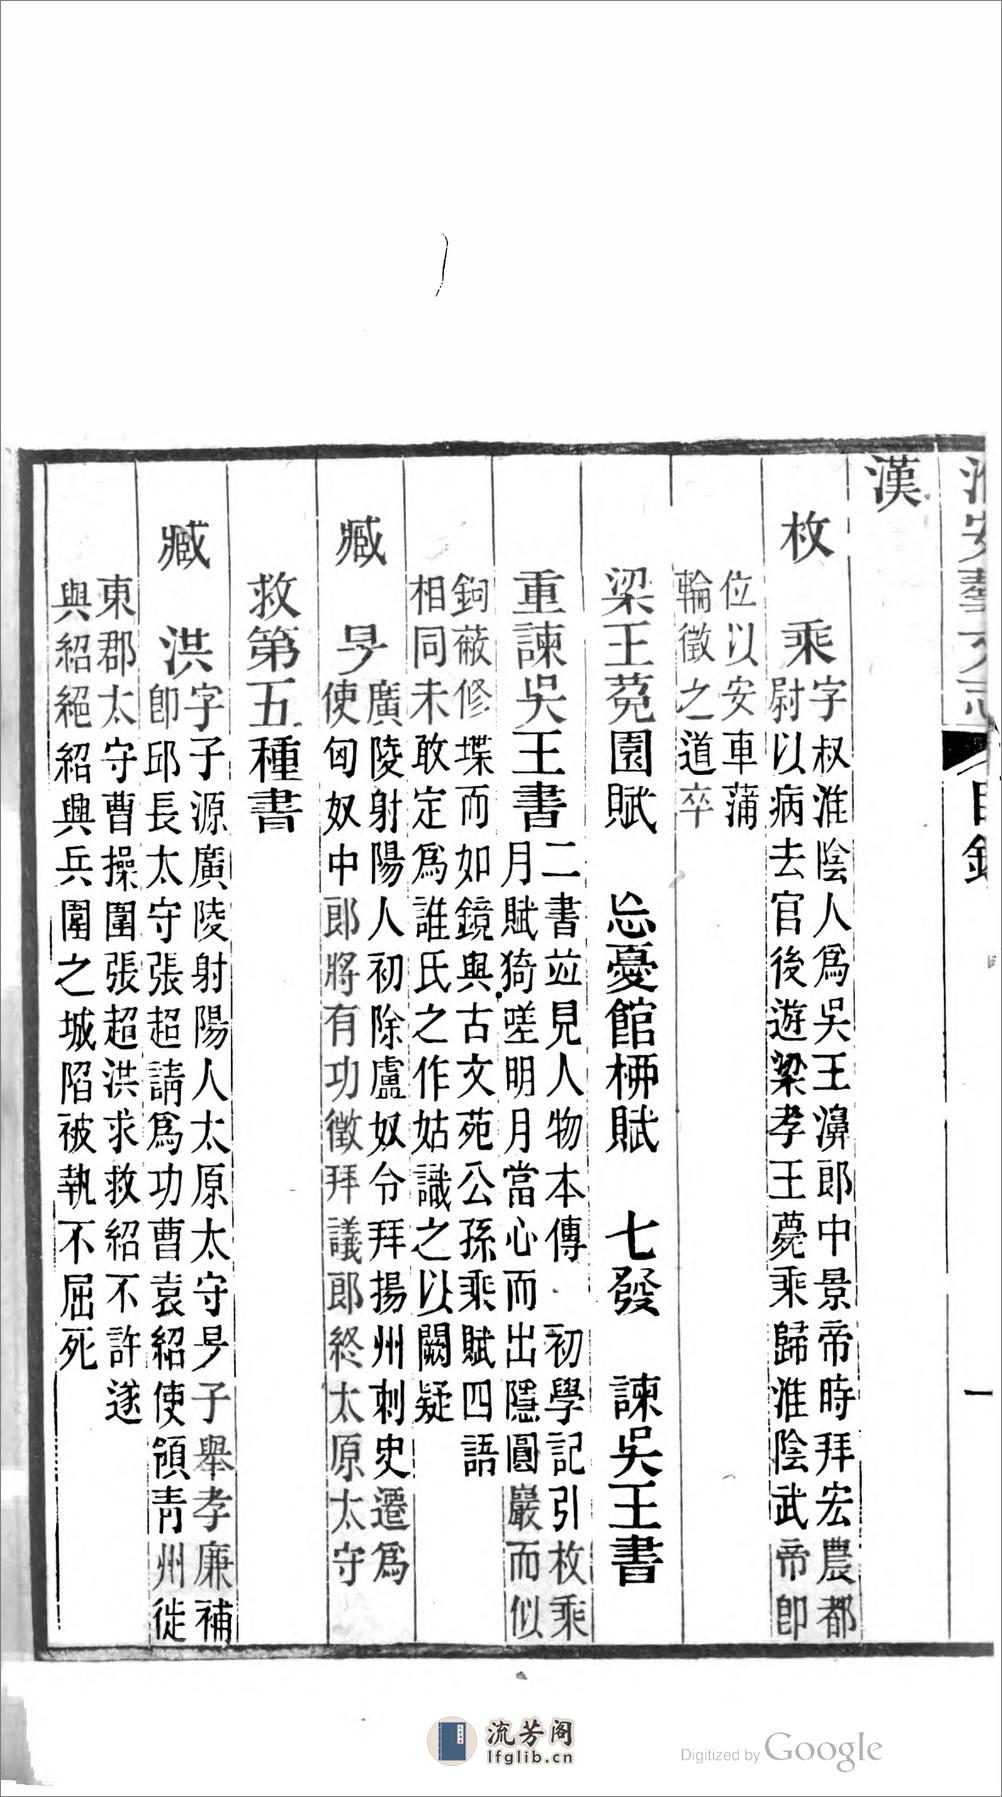 淮安藝文志 目錄 一
漢
枚乘 字叔淮陰人爲吳王濞郎中景帝時拜宏農都
尉以病去官後遊梁孝王薨乘歸淮陰武帝卽
位以安車蒲
輪徵之道卒
梁王菟園賦 忘憂館栁賦 七發 諫吳王書
重諫吳王書 二書並見人物本傳 初學記引枚乘
月賦猗嗟明月當心而出隱圓巖而似
鉤蔽修堞而如鏡與古文苑公孫乘賦四語
相同未敢定爲誰氏之作姑識之以闕疑
臧旻 廣陵射陽人初除盧奴令拜揚州刺史遷爲
使匈奴中郎將有功徵拜議郎終太原太守
救第五種書
臧洪 字子源廣陵射陽人太原太守旻子舉孝廉補
卽邱長太守張超請爲功曹袁紹使領靑州徙
東郡太守曹操圍張超洪求救紹不許遂
與紹絕紹興兵圍之城陷被執不屈死
流芳阁
lfglib.cn
Digitized by Google